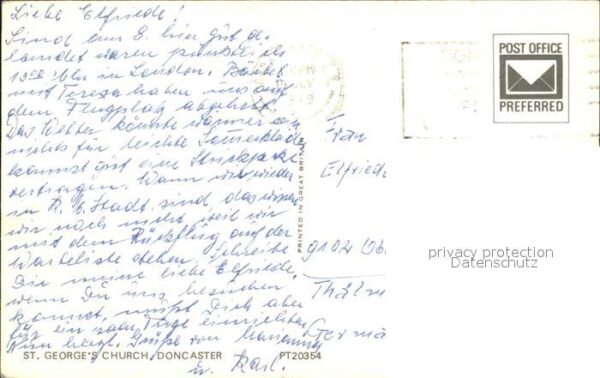 Liebe Elfriede!
Sind am 8. hier gut ge-
landet waren pünktlich
13:00 Uhr in London. Bärbel
mit Teresa haben uns auf
dem Flugplatz abgeholt.
Das Wetter könnte wärmer sein
nichts für leichte Sommerkleider
kannst gut eine Strickjacke
vertragen. Wann wir wieder
in K. M. Stadt sind, das wissen
wir noch nicht weil wir
mit dem Rückflug auf der
Warteliste stehen. Schreibe
Dir meine liebe Elfriede,
wenn Du uns besuchen
kannst, mußt Dich aber
für ein paar Tage einrichten
Nun herzl. Grüße von Marianne
u. Karl.
ST. GEORGE'S CHURCH, DONCASTER
PT20354
PRINTED IN GREAT BRITAIN
POST OFFICE
PREFERRED
Frau
Elfriede
9102
German
privacy protection
Datenschutz